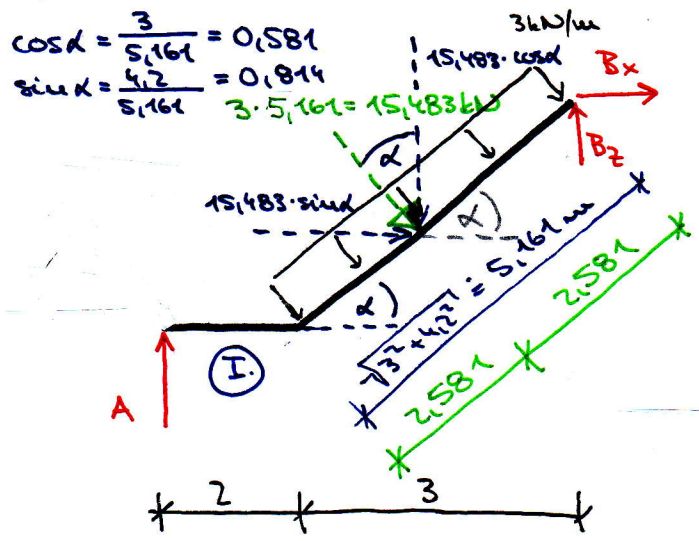 cosα = 3/5,161 = 0,581
sinα = 4,2/5,161 = 0,814
3·5,161 = 15,483 kN
3kN/m
15,483·cosα
Bx
Bz
α
15,483·sinα
α
α
√3²+4,2² = 5,161 m
2,581
2,581
I.
A
2
3